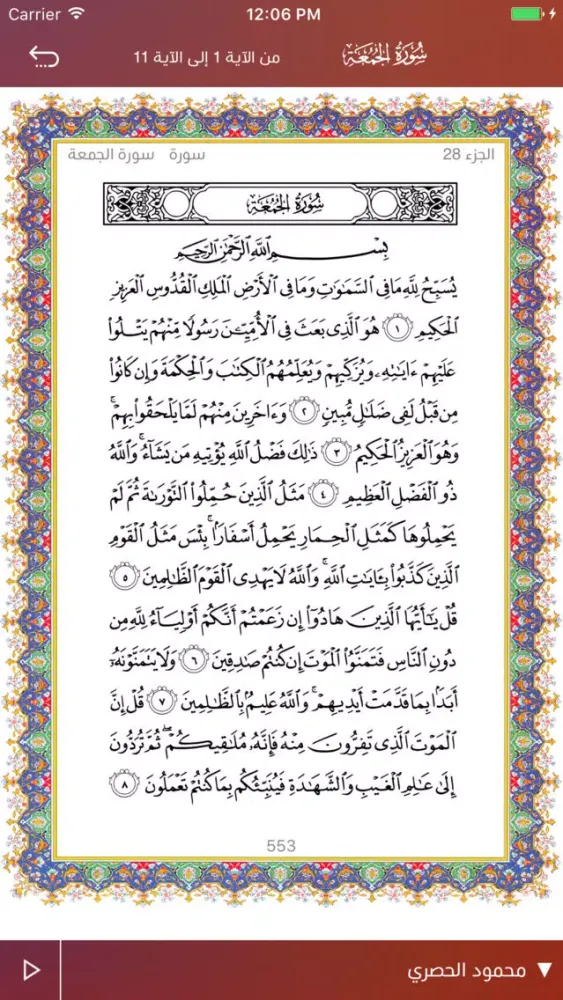 Carrier 12:06 PM
سورة الجمعة من الآية 1 إلى الآية 11
الجزء 28 سورة سورة الجمعة
سُورَةُ الجُمُعَة
بِسْمِ اللَّهِ الرَّحْمَٰنِ الرَّحِيمِ
يُسَبِّحُ لِلَّهِ مَا فِي السَّمَٰوَٰتِ وَمَا فِي الْأَرْضِ الْمَلِكِ الْقُدُّوسِ الْعَزِيزِ
الْحَكِيمِ ١ هُوَ الَّذِي بَعَثَ فِي الْأُمِّيِّـۧنَ رَسُولًا مِّنْهُمْ يَتْلُوا
عَلَيْهِمْ ءَايَٰتِهِۦ وَيُزَكِّيهِمْ وَيُعَلِّمُهُمُ الْكِتَٰبَ وَالْحِكْمَةَ وَإِن كَانُوا
مِن قَبْلُ لَفِي ضَلَٰلٍ مُّبِينٍ ٢ وَءَاخَرِينَ مِنْهُمْ لَمَّا يَلْحَقُوا بِهِمْ ۚ
وَهُوَ الْعَزِيزُ الْحَكِيمُ ٣ ذَٰلِكَ فَضْلُ اللَّهِ يُؤْتِيهِ مَن يَشَاءُ ۚ وَاللَّهُ
ذُو الْفَضْلِ الْعَظِيمِ ٤ مَثَلُ الَّذِينَ حُمِّلُوا التَّوْرَىٰةَ ثُمَّ لَمْ
يَحْمِلُوهَا كَمَثَلِ الْحِمَارِ يَحْمِلُ أَسْفَارًا ۚ بِئْسَ مَثَلُ الْقَوْمِ
الَّذِينَ كَذَّبُوا بِـَٔايَٰتِ اللَّهِ ۚ وَاللَّهُ لَا يَهْدِي الْقَوْمَ الظَّٰلِمِينَ ٥
قُلْ يَٰٓأَيُّهَا الَّذِينَ هَادُوٓا إِن زَعَمْتُمْ أَنَّكُمْ أَوْلِيَاءُ لِلَّهِ مِن
دُونِ النَّاسِ فَتَمَنَّوُا الْمَوْتَ إِن كُنتُمْ صَٰدِقِينَ ٦ وَلَا يَتَمَنَّوْنَهُۥٓ
أَبَدًۢا بِمَا قَدَّمَتْ أَيْدِيهِمْ ۚ وَاللَّهُ عَلِيمٌۢ بِالظَّٰلِمِينَ ٧ قُلْ إِنَّ
الْمَوْتَ الَّذِي تَفِرُّونَ مِنْهُ فَإِنَّهُۥ مُلَٰقِيكُمْ ۖ ثُمَّ تُرَدُّونَ
إِلَىٰ عَٰلِمِ الْغَيْبِ وَالشَّهَٰدَةِ فَيُنَبِّئُكُم بِمَا كُنتُمْ تَعْمَلُونَ ٨
553
محمود الحصري